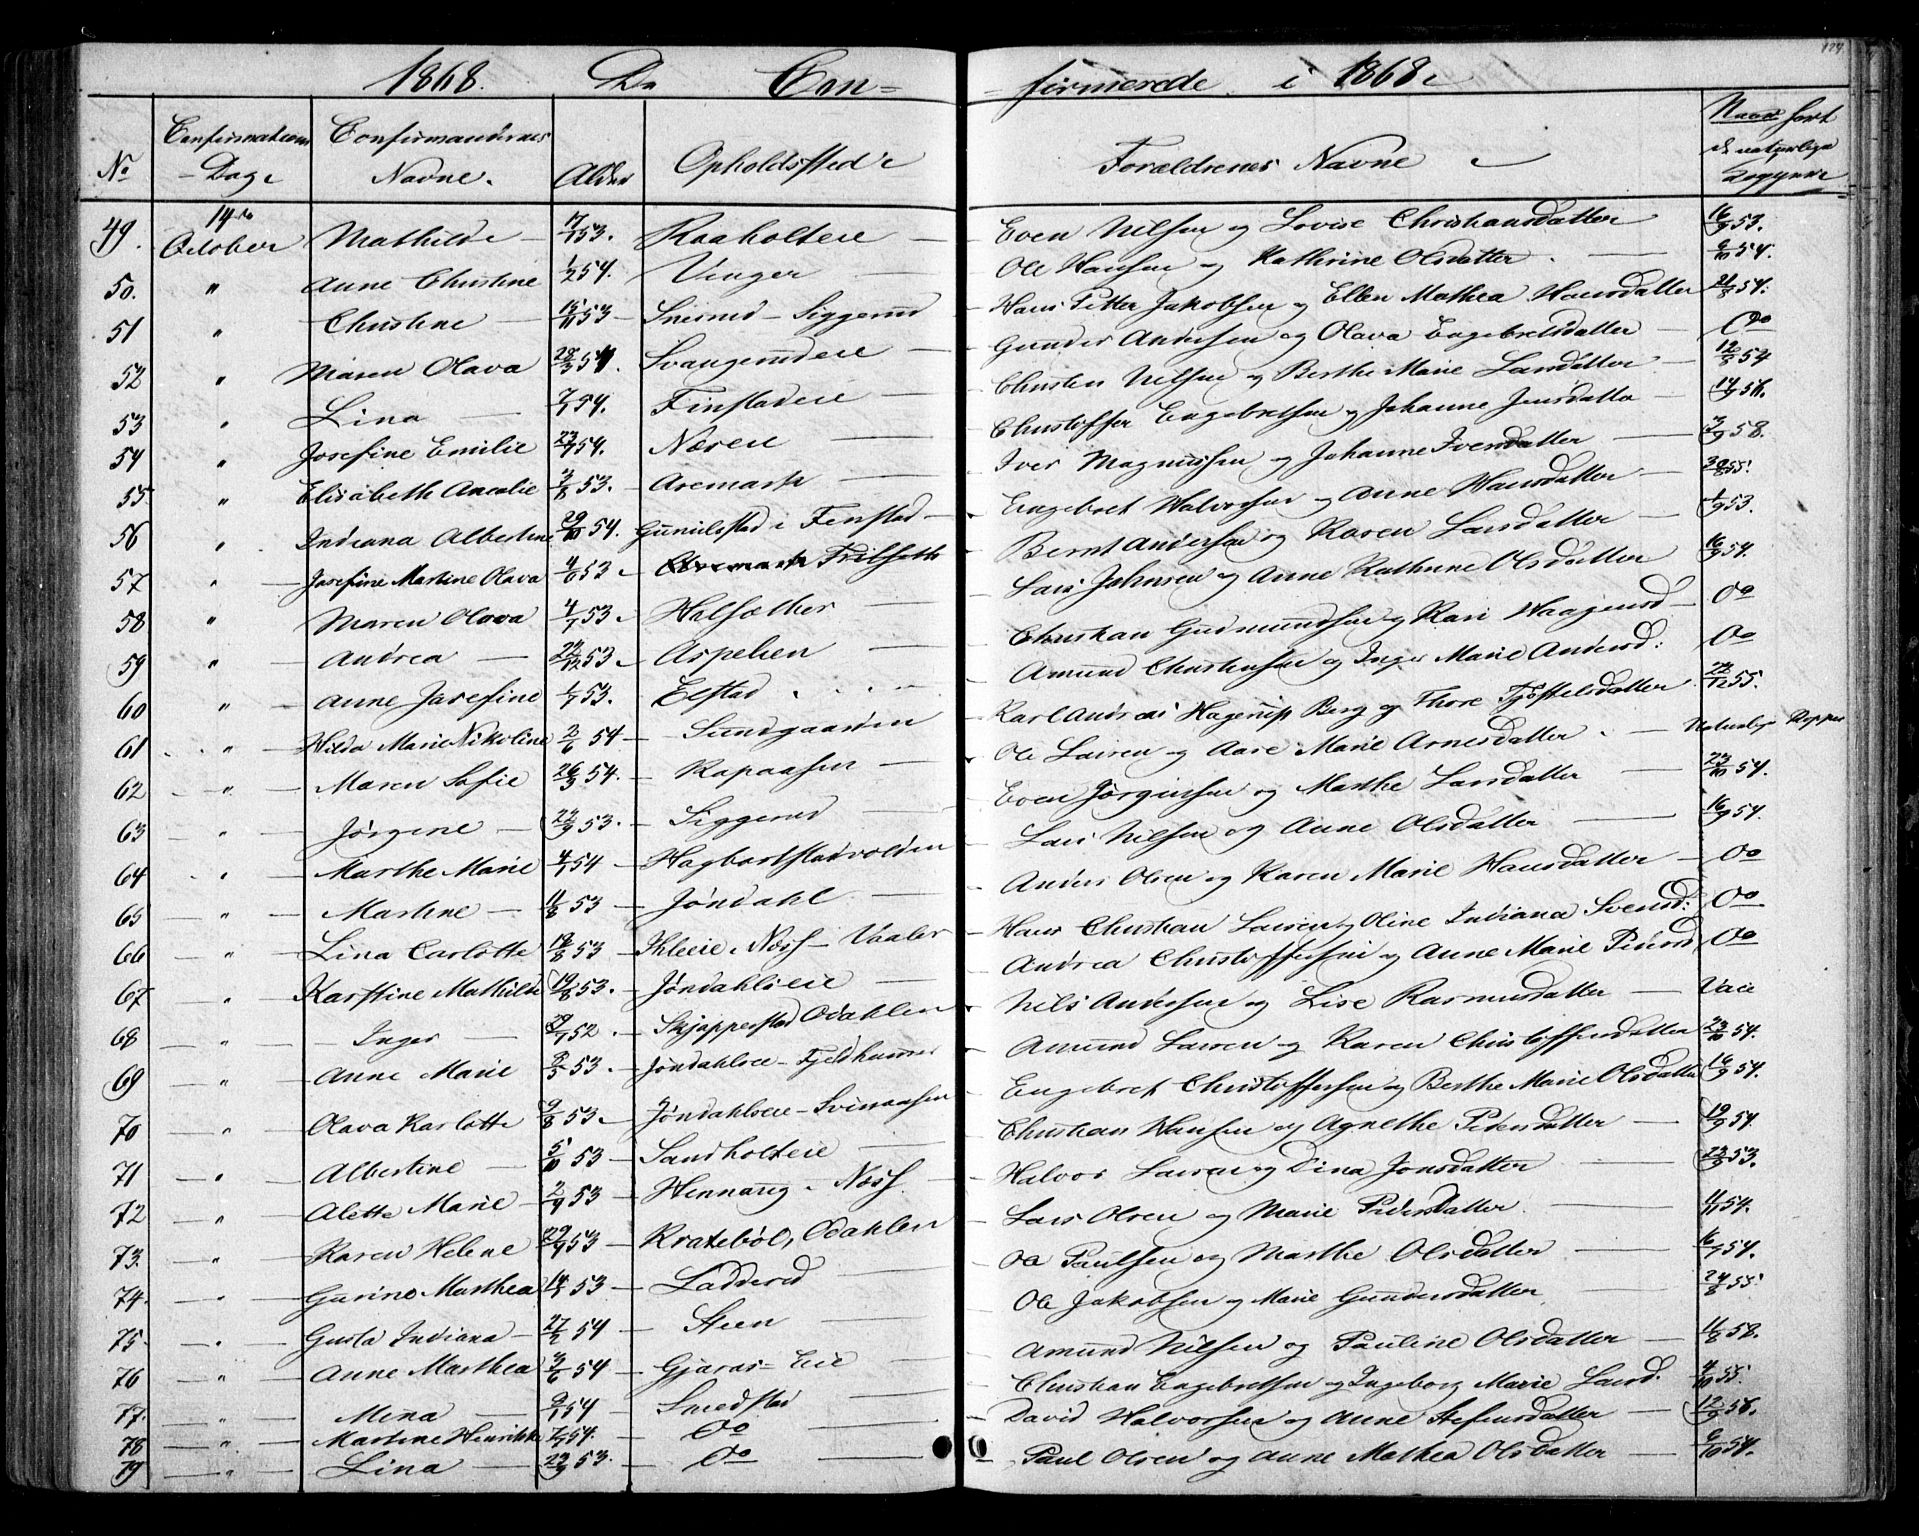 124
1868. De Con= =firmerede i 1868
No Confirmations Dage Confirmandernes Navne. Alder Opholdssted Forældrenes Navne Naar først de naturlige Kopper
49. 14de October Mathilde 17/7 53. Raaholteie Even Nilsen og Lovise Christiansdatter 16/9 53.
50. " Anne Christine 1/2 54. Vinger Ole Hansen og Kathrine Olsdatter 9/10 54.
51 " Christine 15/11 53 Snesrud Siggerud Hans Petter Jakobsen og Ellen Mathea Hansdatter 21/8 54.
52 " Maren Olava 28/3 54. Svangerudeie Gunder Andersen og Olava Engebretsdatter Do
53 " Lina 7/7 54. Finstadeie Christen Nilsen og Berthe Marie Larsdatter 12/8 54
54 " Josefine Emilie 23/7 54. Næreie Christoffer Engebretsen og Johanne Jensdatter 14/9 56.
55 " Elisabeth Amalie 3/8 53. Aremark Iver Magnussen og Johanne Iversdatter 3/9 58.
56 " Indiana Albertine 29/10 54. Gunnilstad i Fenstad Engebret Halvorsen og Anne Hansdatter 30/8 55.
57 " Josefine Martine Olava 4/6 53. Frilseth Bernt Andersen og Karen Larsdatter 1/9 53.
58 " Maren Olava 4/7 53. Holsæther Lars Johnsen og Anne Kathrine Olsdatter 16/9 54.
59 " Andrea 22/12 53. Aspelien Christian Gudmundsen og Kari Haagensd Do
60 " Anne Josefine 1/7 53. Elstad Amund Christensen og Inger Marie Andersd: Do
61 " Hilda Marie Nikoline 2/6 54 Sundgaarden Karl Andreas Hagerup Berg og Thore Tjøstelsdatter 22/12 55.
62 " Maren Sofie 26/3 54. Rapaasen Ole Larsen og Aase Marie Arnesdatter Naturlige Kopper
63 " Jørgine 22/9 53. Siggerud Even Jørgensen og Marthe Larsdatter 23/10 54.
64 " Marthe Marie 4/7 54 Hagbartstadvolden Lars Nilsen og Anne Olsdatter 16/9 54.
65 " Martine 11/8 53 Jøndahl Anders Olsen og Karen Marie Hansdatter Do
66 " Lina Carlotte 19/8 53 Kleeie Næss Vaaler Hans Christian Larsen og Oline Indiana Svensd: Do
67 " Karstine Mathilde 19/8 53. Jøndahlseie Andrea Christoffersen og Anne Marie Pedersd Do
68 " Inger 29/7 52. Skjøpperstad Odahlen Nils Andersen og Lise Rasmusdatter
69 " Anne Marie 8/5 53. Jøndahlseie Fjeldhammer Amund Larsen og Karen Christoffersdatter 23/10 54.
70 " Olava Karlotte 9/8 53. Jøndahlseie Svinaasen Engebret Christoffersen og Berthe Marie Olsdatter 16/9 54.
71 " Albertine 5/10 53 Sandholteie Christian Hansen og Agnethe Pedersdatter 19/9 54.
72 " Alette Marie 2/9 53 Hennaug Næss Halvor Larsen og Dina Jonsdatter 22/9 53.
73. " Karen Helene 29/9 53 Kratebøl, Odahlen Lars Olsen og Marie Pedersdatter 11/9 54.
74. " Gurine Marthea 14/7 53 Ladderud Ole Paulsen og Marthe Olsdatter 16/7 54.
75. " Gusta Indiana 27/2 54 Steen Ole Jakobsen og Marie Gundersdatter 24/8 55
76 " Anne Marthea 3/6 54 Gjøraas-Eie Amund Nilsen og Pauline Olsdatter 11/8 58.
77. " Mina 9/1 54 Smedstad Christian Engebretsen og Ingeborg Marie Larsd. 4/10 55.
78 " Martine Henrikke 7/7 54. Do David Halvorsen og Anne Stefensdatter 12/9 56.
79 " Lina 23/9 53. Do Paul Olsen og Anne Mathea Olsdatter 9/10 54.